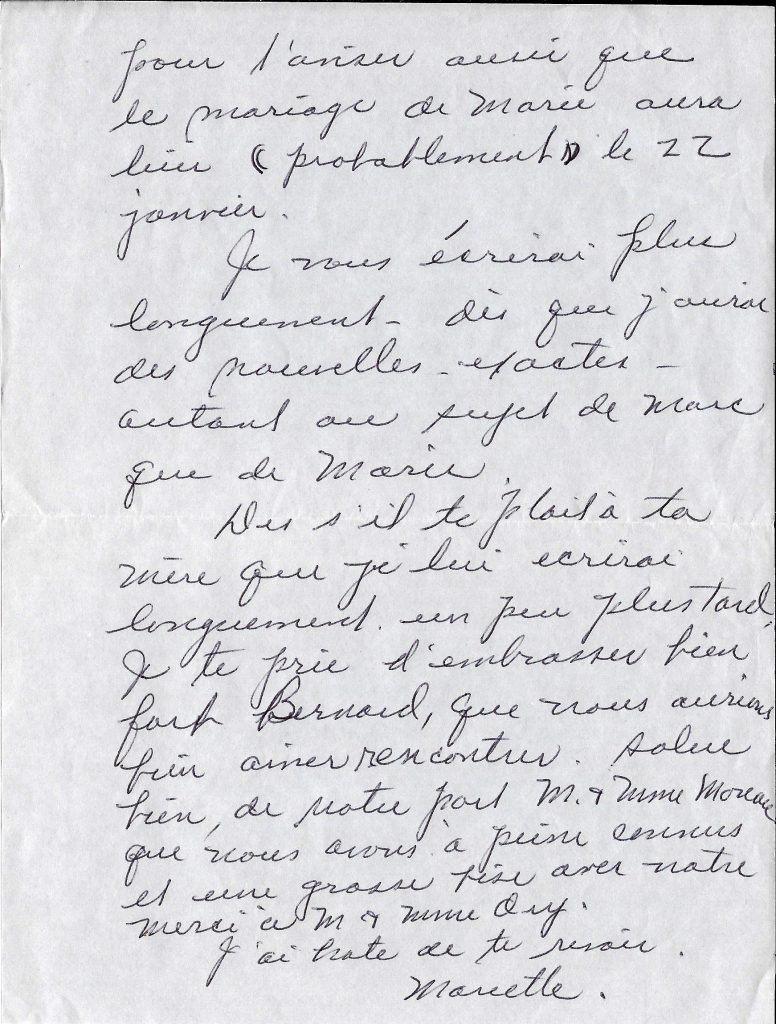 pour t'aviser aussi que
le mariage de Marie aura
lieu (probablement) le 22
janvier.
Je vous écrirai plus
longuement - dès que j'aurai
des nouvelles - exactes -
autant au sujet de Marc
que de Marie.
Dis s'il te plait à ta
mère que je lui ecrirai
longuement un peu plus tard.
Je te prie d'embrasser bien
fort Bernard, que nous aurions
bien aimer rencontrer. Salue
bien, de notre part M. & Mme Moreau
que nous avons à peine connus
et une grosse bise avec notre
merci à M & Mme
J'ai hate de te revoir.
Mariette.